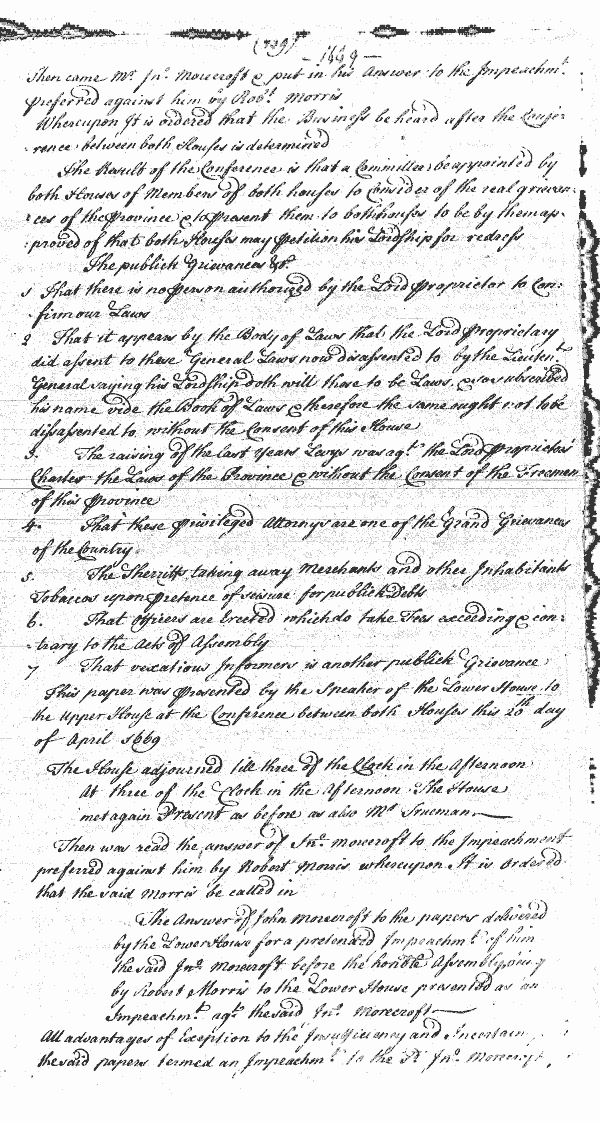 (729)
- 1669 -
Then came Mr. Jno. Morecroft & put in his Answer to the Impeachmt.
preferred against him by Robt. Morris
Whereupon It is ordered that the Business be heard after the Confe-
rence between both Houses is determined
The Result of the Conference is that a Committee be appointed by
both Houses of Members of both houses to consider of the real grievan-
ces of the Province & to present them to both houses to be by them ap-
proved of that both Houses may Petition his Lordship for redress
The publick Grievances &c.
1 That there is no Person authorized by the Lord Proprietor to Con-
firm our Laws
2 That it appears by the Body of Laws that the Lord Proprietary
did assent to these General Laws now disassented to by the Lieutent.
General saying his Lordship doth will these to be Laws, & so subscribed
his name vide the Book of Laws & therefore the same ought not to be
dissassented to without the Consent of this House
3. The raising of the last Years Levys was agt. the Lord Proprietors
Charter the Laws of the Province & without the Consent of the Freemen
of this Province
4. That these Priviledged Attornys are one of the Grand Grievances
of the Country.
5. The Sherriffs taking away Merchants and other Inhabitants
Tobaccos upon Pretence of Seisure for publick Debts
6. That Officers are Erected which do take Fees exceeding & con-
trary to the Acts of Assembly
7 That vexatious Informers is another publick Grievance
This paper was Presented by the Speaker of the Lower House to
the Upper House at the Conference between both Houses this 20th day
of April 1669
The House adjourned till three of the Clock in the Afternoon
At three of the Clock in the Afternoon The House
met again Present as before as also Mr. Trueman.
Then was read the answer of Jno. Morecroft to the Impeachment
preferred against him by Robert Morris whereupon It is Ordered
that the said Morris be called in
The Answer of John Morecroft to the papers delivered
by the Lower House for a pretended Impeachmt. of him
the said Jno. Morecroft before the honble Assembly
by Robert Morris to the Lower House presented as an
Impeachmt. agt. the said Jno. Morecroft
All advantages of Exception to the Insufficiency and Incertain
the said papers termed an Impeachmt. to the sd. Jno. Morecroft